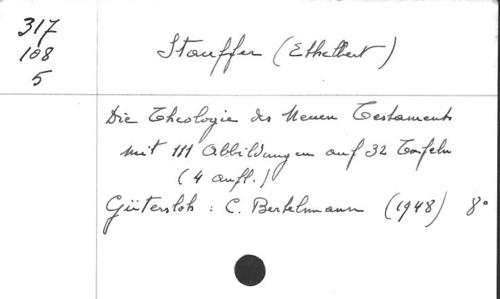 317
108
5
Stauffer (Ethelbert)
Die Theologie des Neuen Testaments
mit 111 Abbildungen auf 32 Tafeln
(4 Aufl.)
Gütersloh : C. Bertelmann (1948) 8°